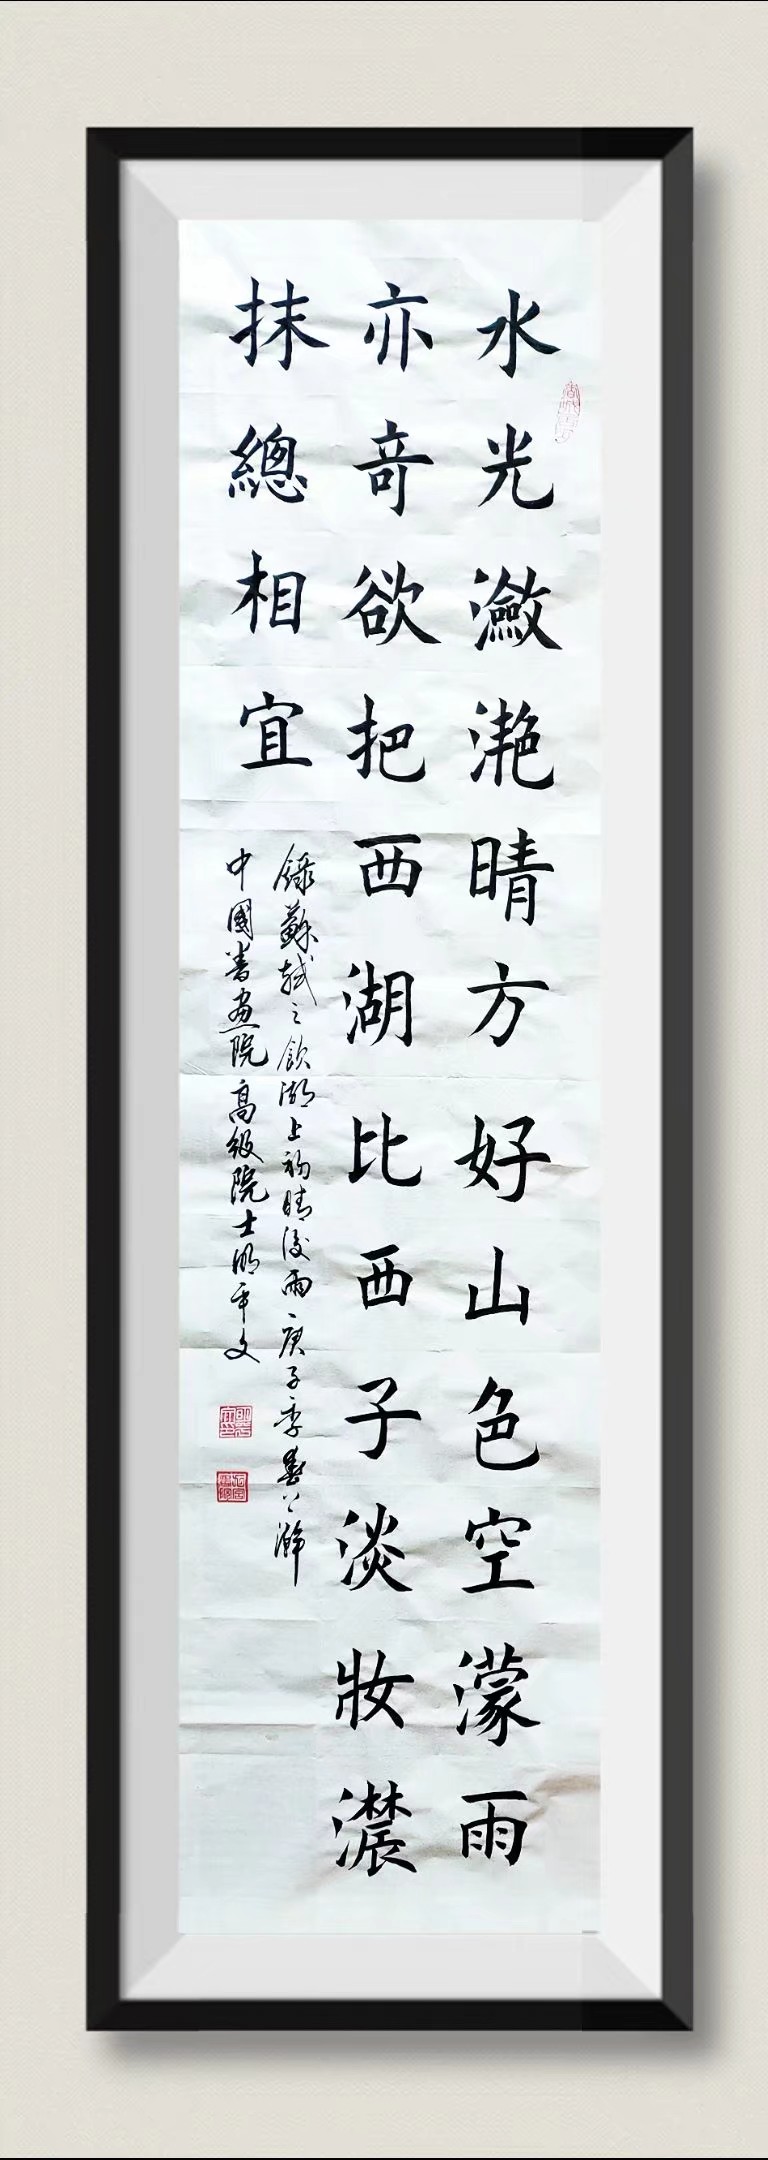 水光瀲灔晴方好山色空濛雨
亦奇欲把西湖比西子淡妝濃
抹總相宜
錄蘇軾之飲湖上初晴後雨庚子季春
中國書畫院高級院士